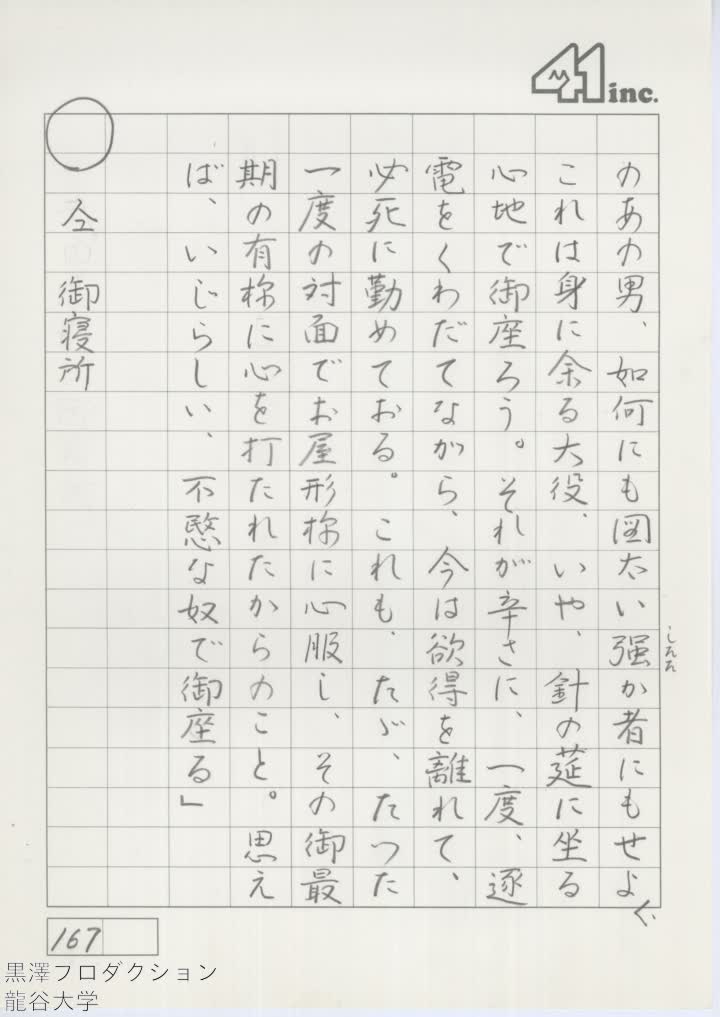 41 inc.
のあの男、如何にも図太い強か者にもせよ
したた
これは身に余る大役、いや、針の莚に坐る
心地で御座ろう。それが辛さに、一度、逐
電をくわだてながら、今は欲得を離れて、
必死に勤めておる。これも、たゞ、たつた
一度の対面でお屋形様に心服し、その御最
期の有様に心を打たれたからのこと。思え
ば、いじらしい、不愍な奴で御座る」
仝 御寝所
167
黒澤プロダクション
龍谷大学